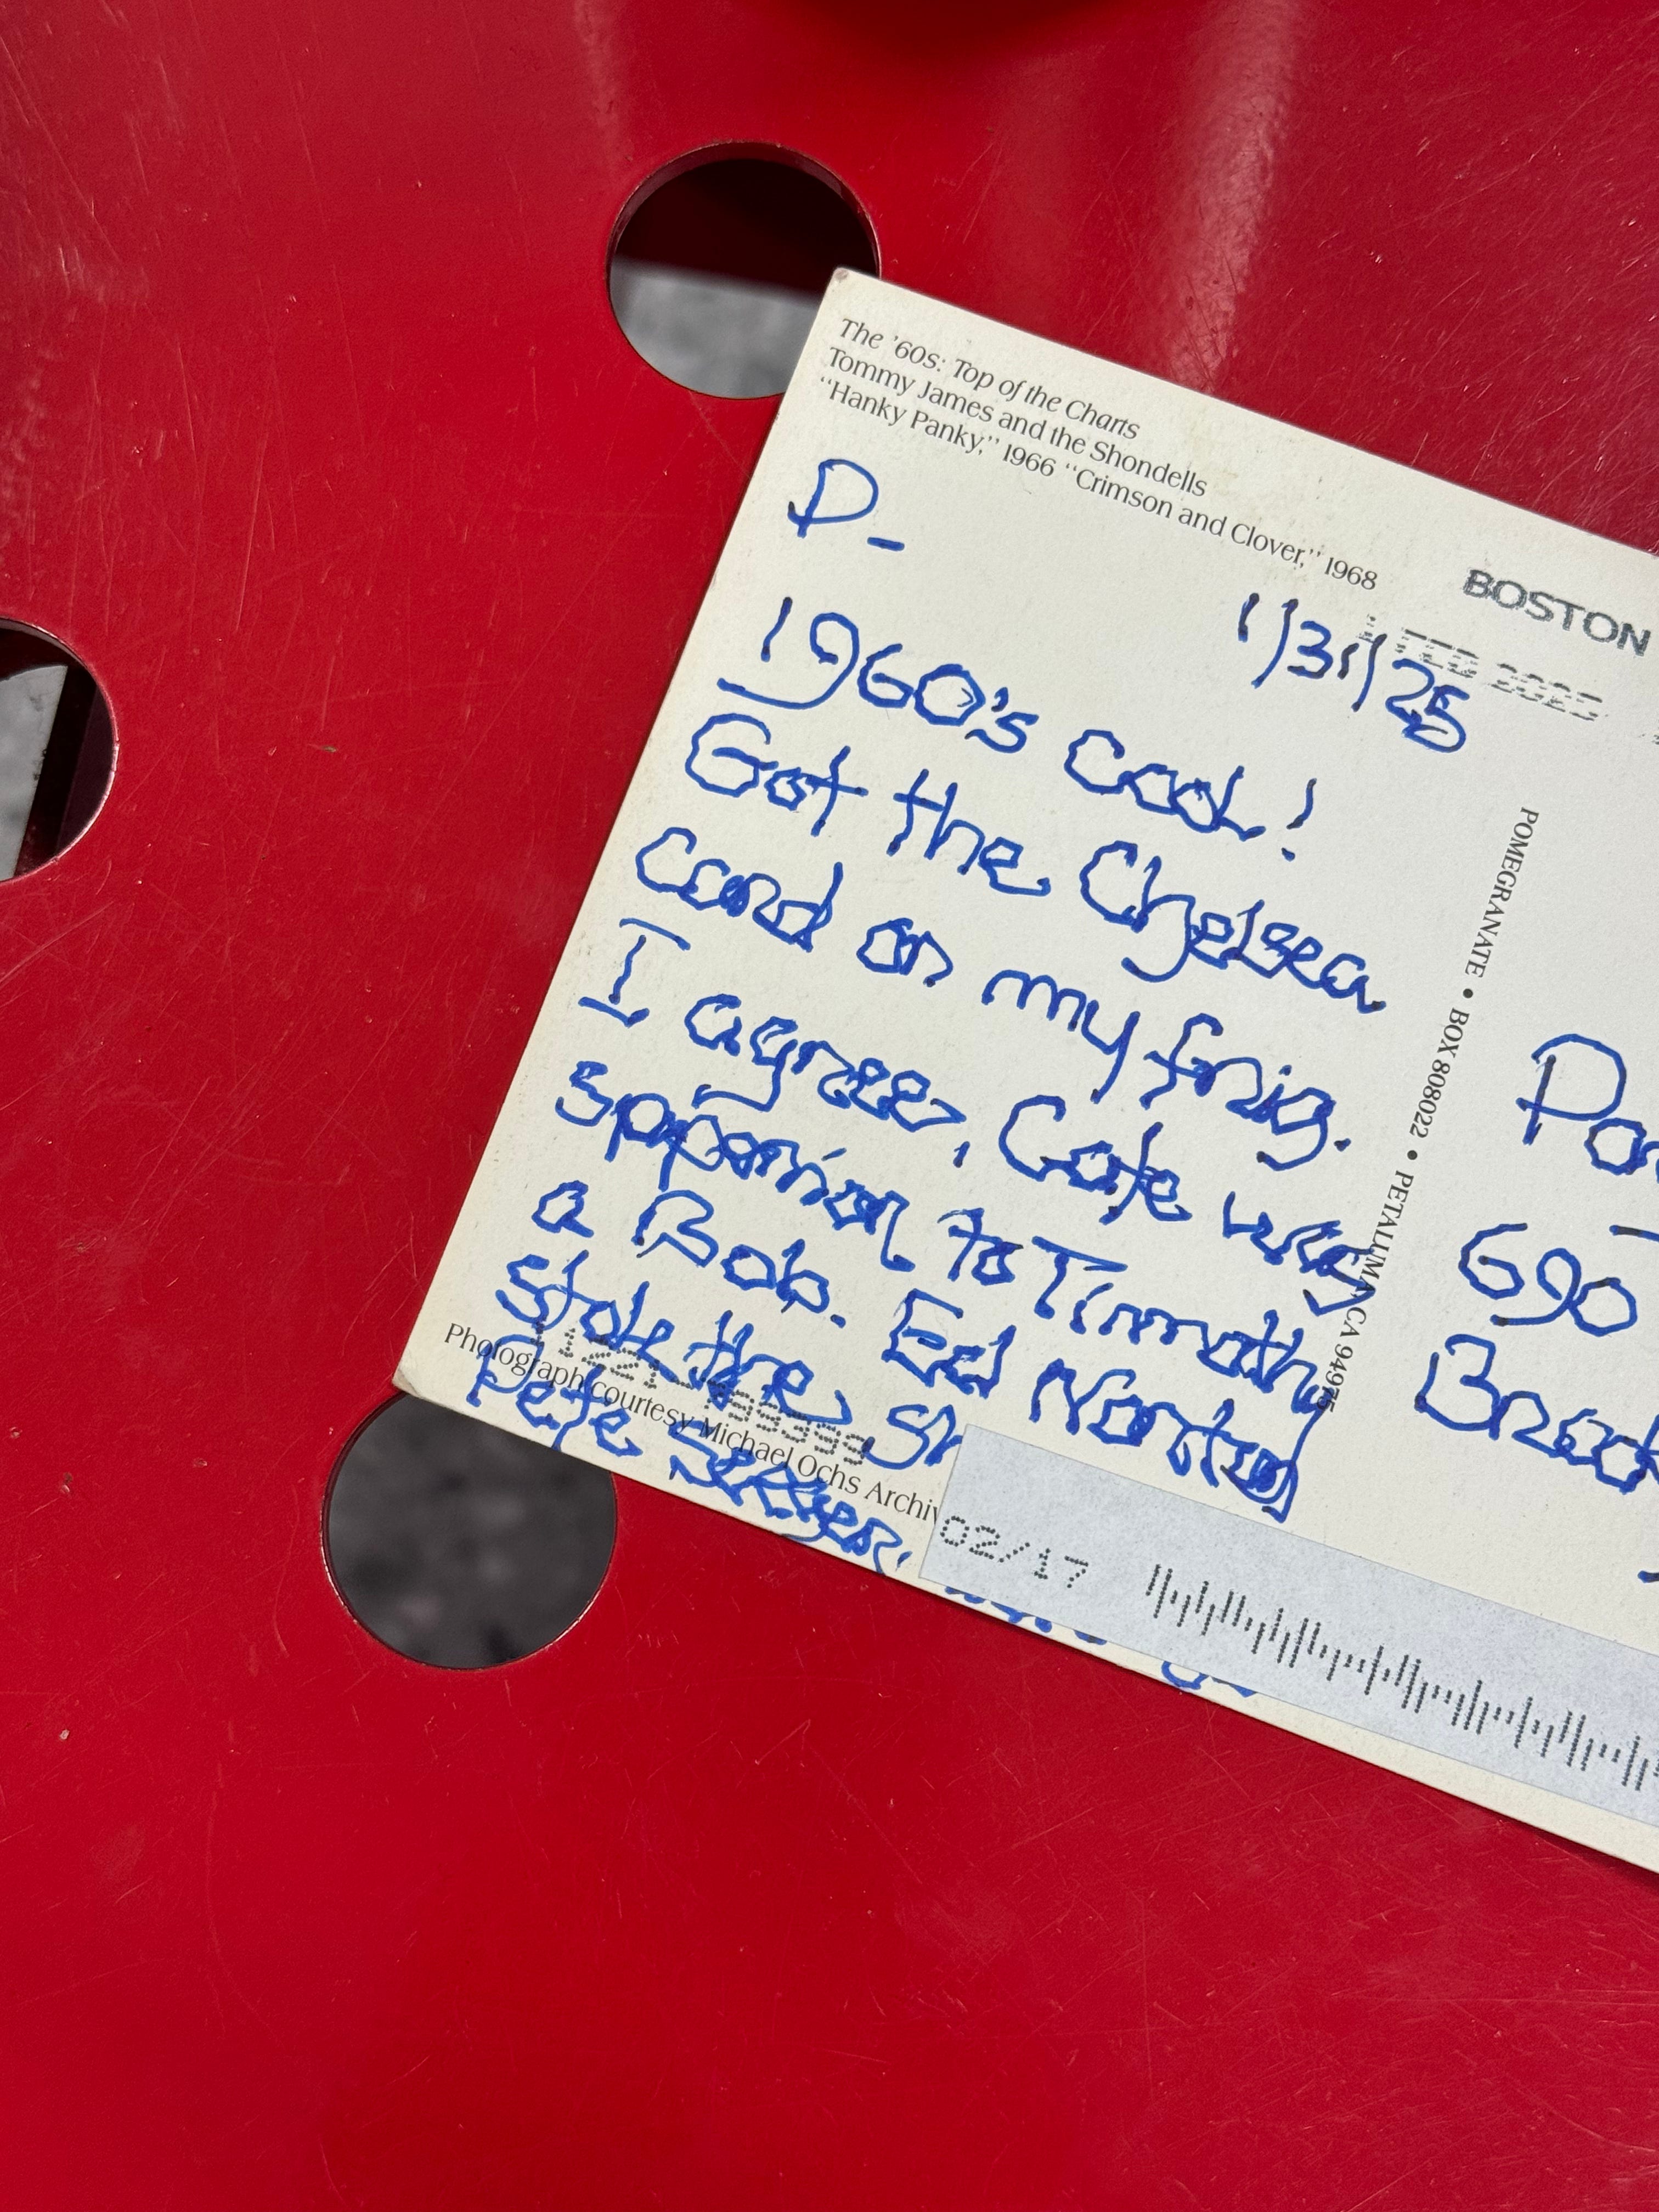 The '60s: Top of the Charts
Tommy James and the Shondells
"Hanky Panky," 1966 "Crimson and Clover," 1968
P-
1/31/25
BOSTON
FEB 2025
1960's cool!
Got the Chelsea
card on my frig.
I agree, Cate was
to Timothy
a Bob. Ed Norton
stole the
Pete Seeger.
Photograph courtesy Michael Ochs
02/17
POMEGRANATE • BOX 808022 • PETALUMA CA 94975
690